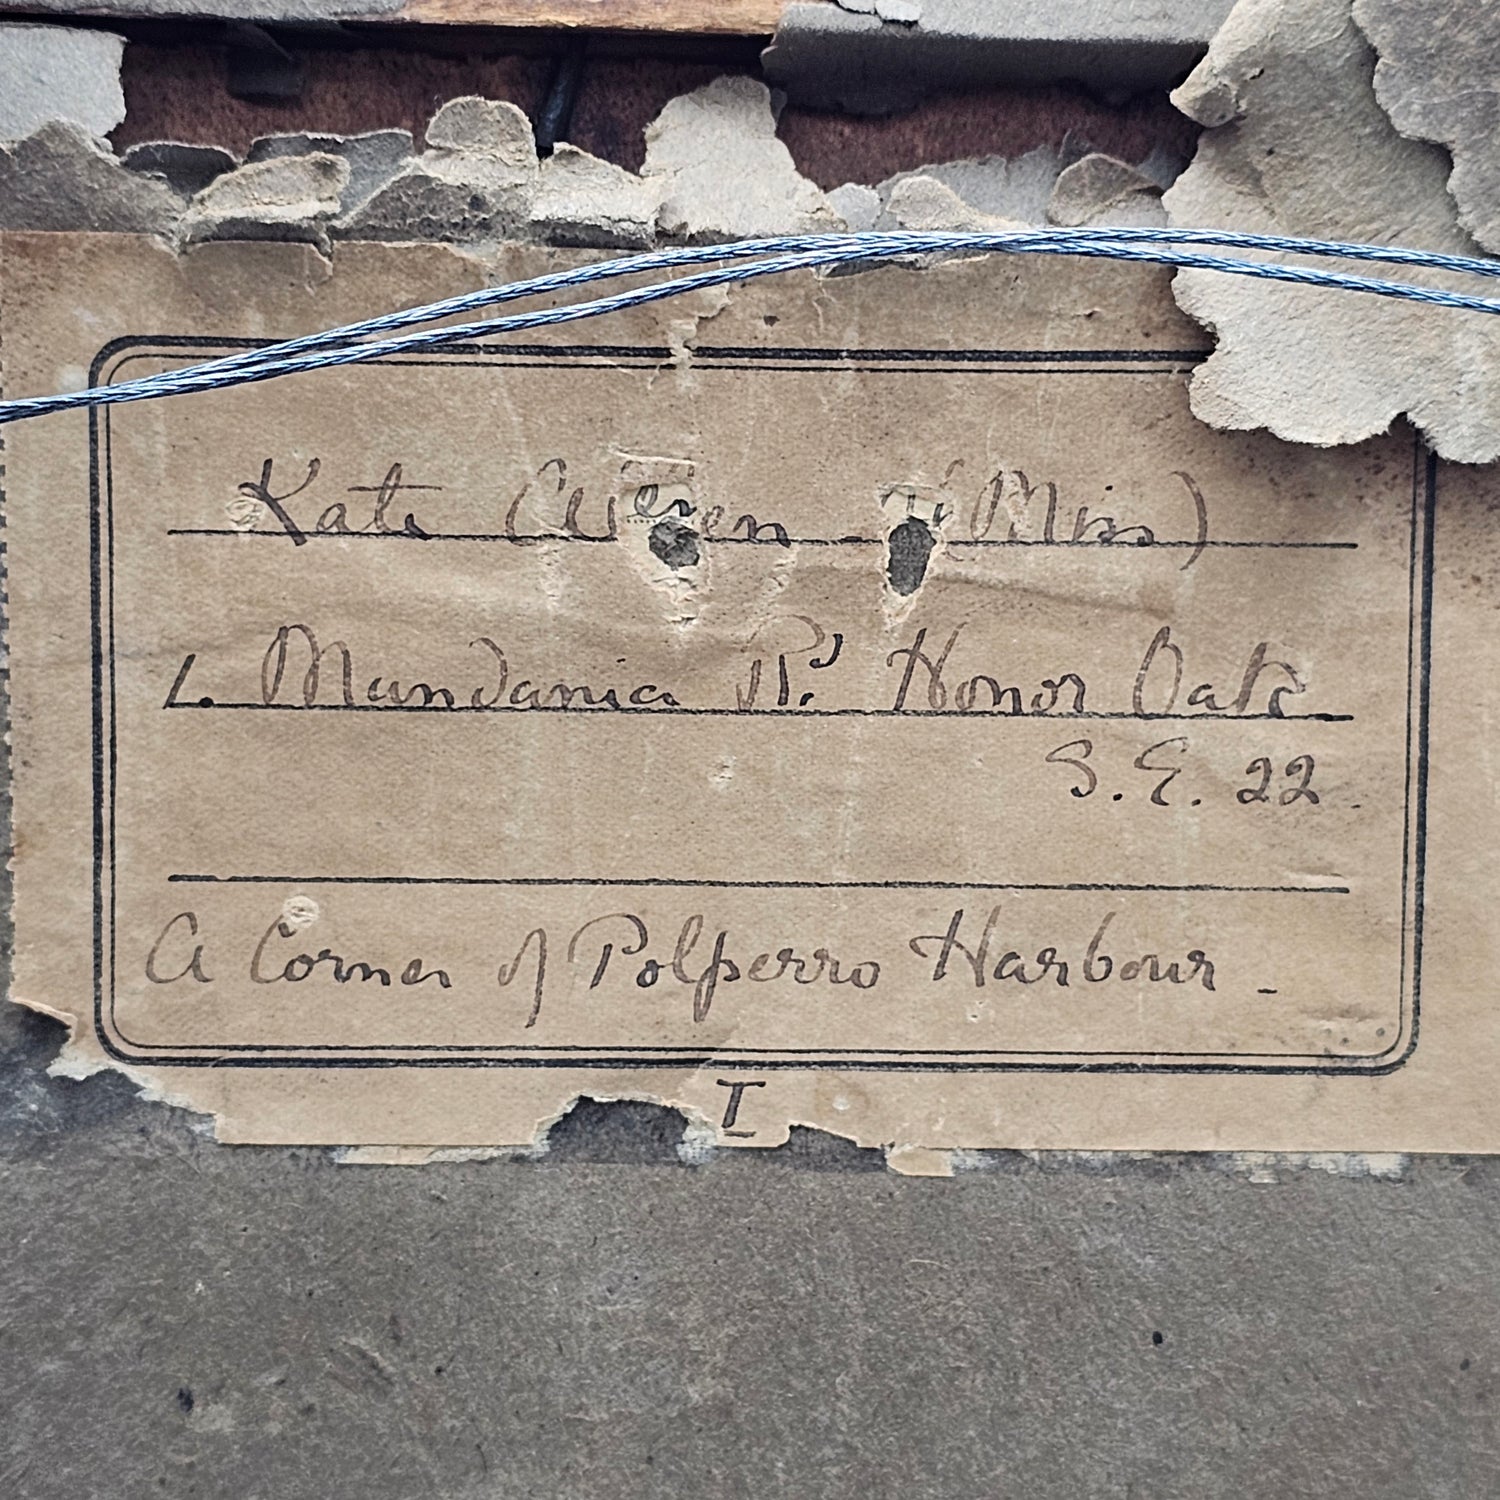 Kate (Miss)
1. Mundania Rd. Honor Oak
S.E. 22.
A Corner of Polperro Harbour -
I